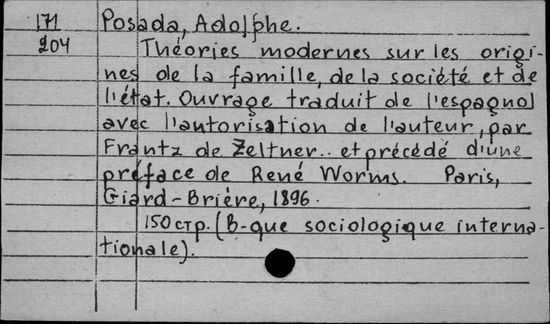 171
204
Posada, Adolphe.
Théories modernes sur les origi-
nes de la famille, de la société et de
l'état. Ouvrage traduit de l'espagnol
avec l'autorisation de l'auteur, par
Frantz de Zeltner.. et précédé d'une
préface de René Worms. Paris,
Giard-Brière, 1896.
150 стр. (B-que sociologique interna-
tionale).